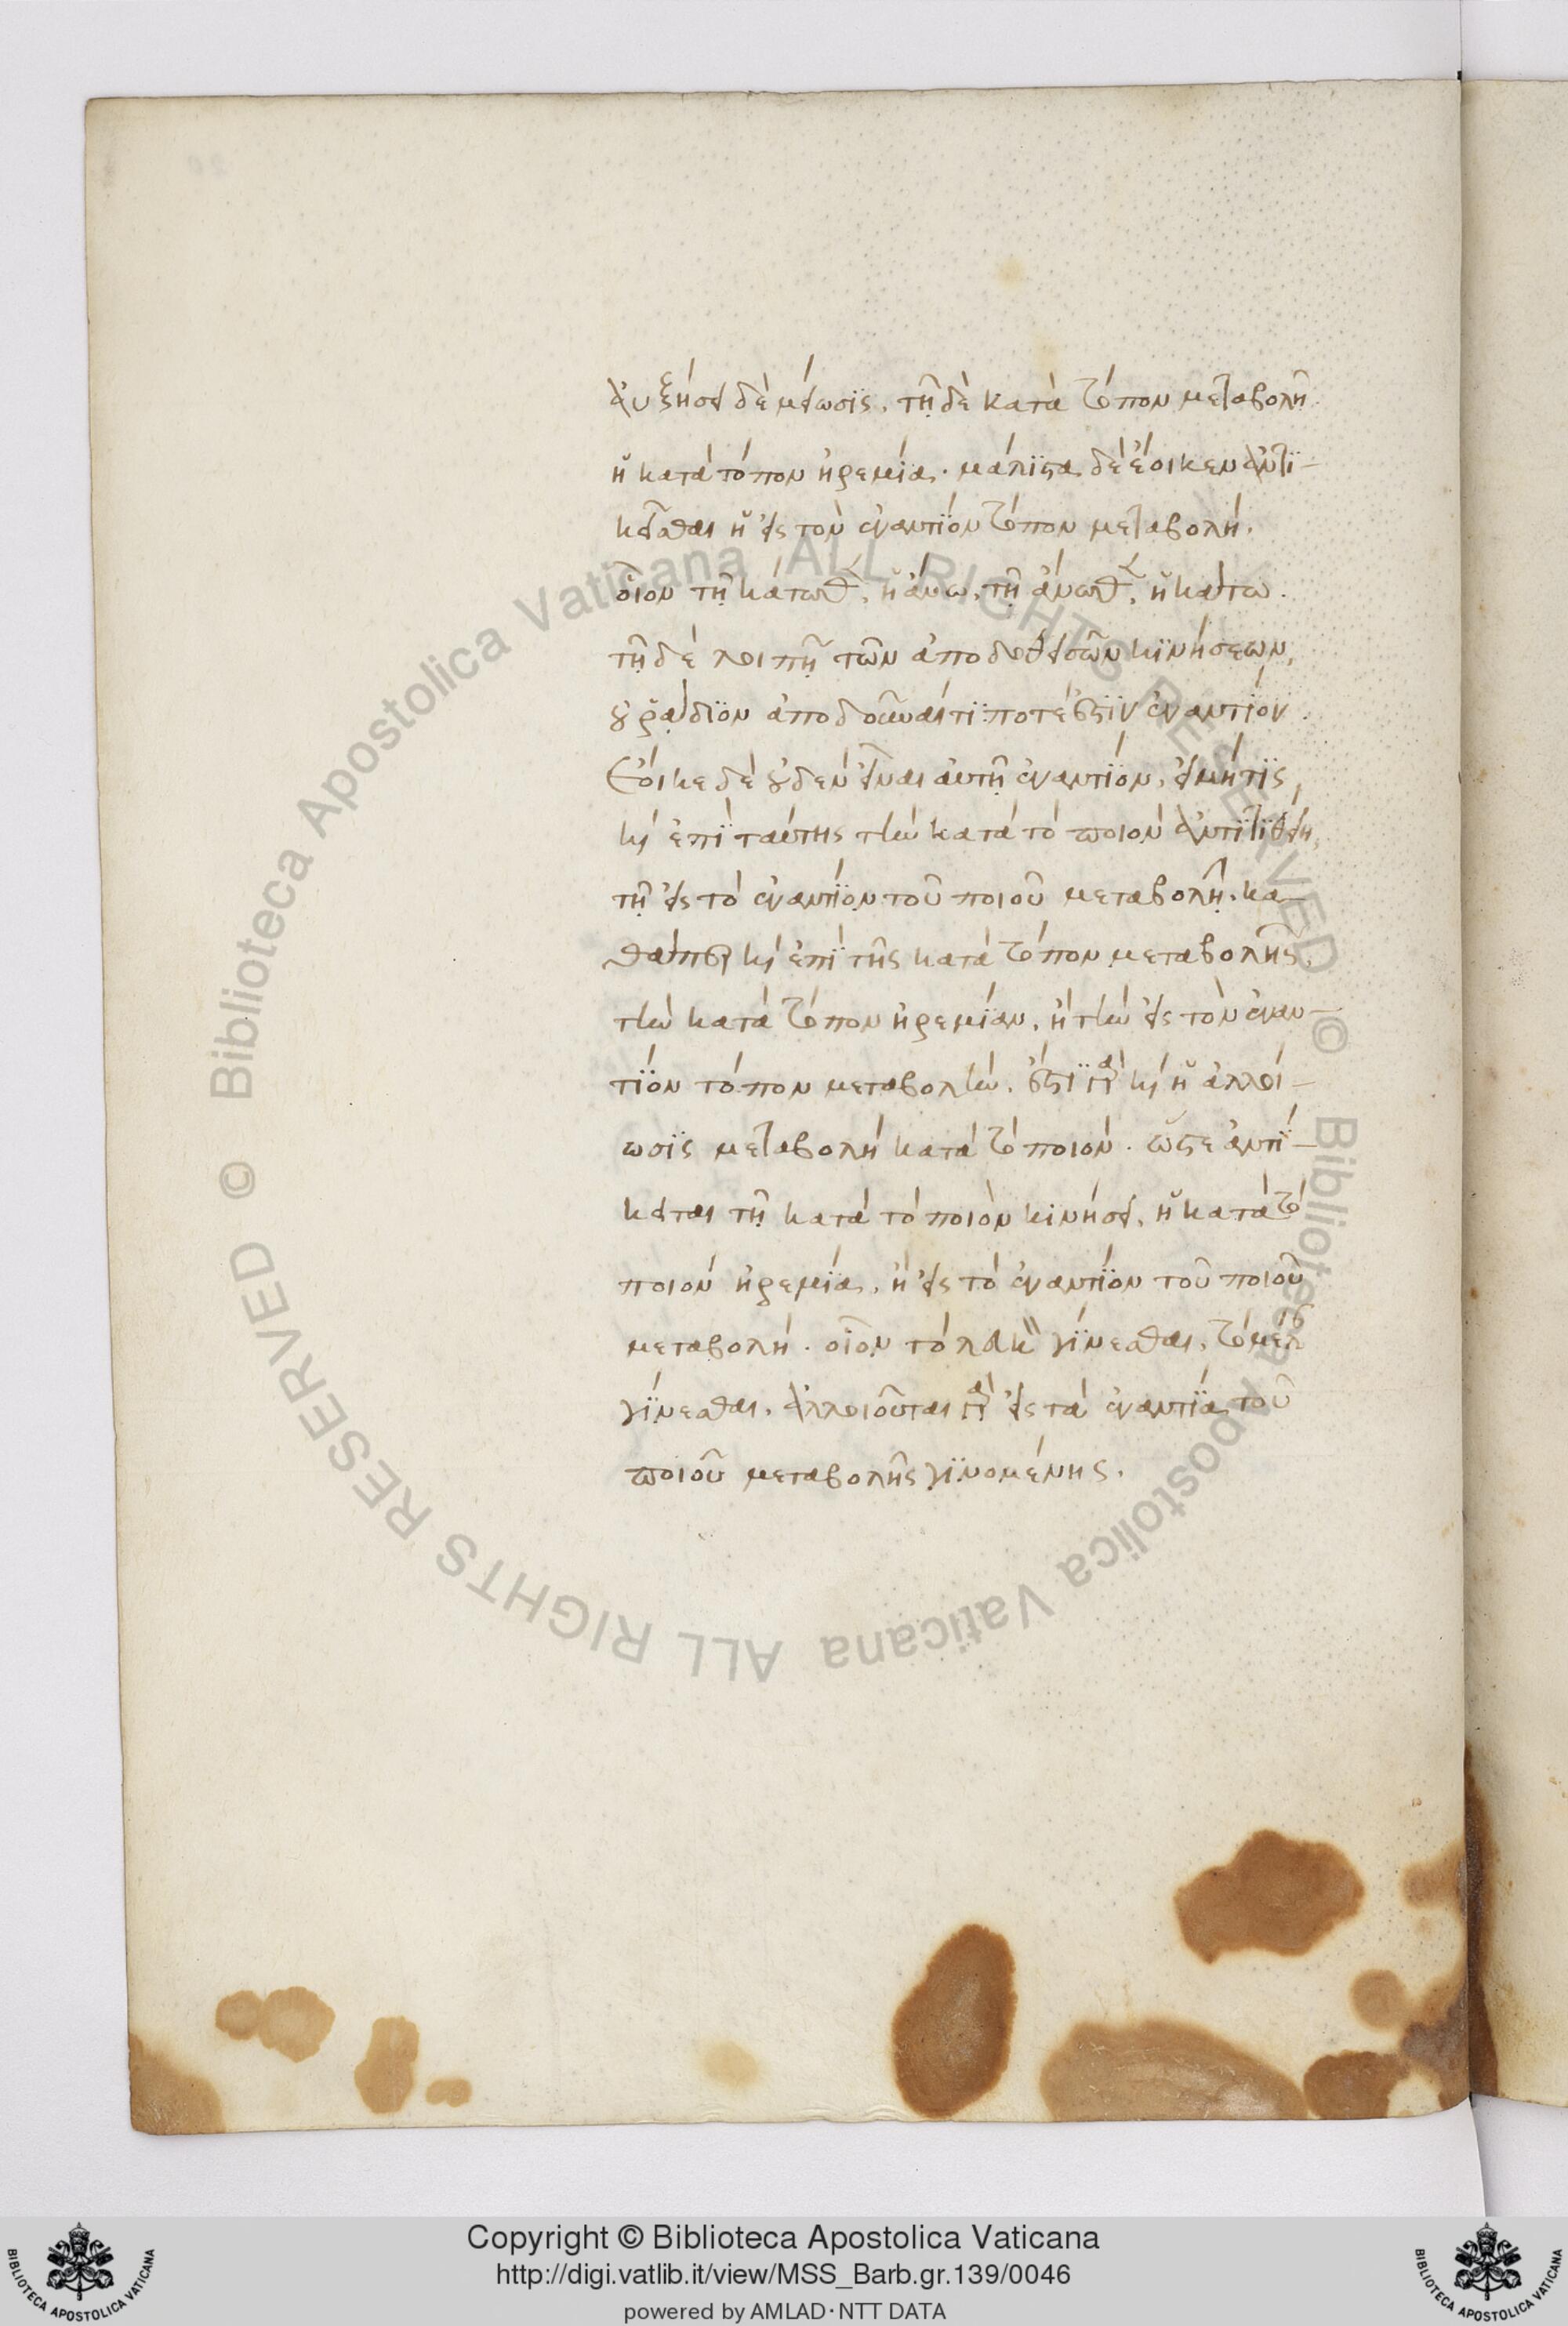 αὐξήσει δὲ μείωσις. τῆ δὲ κατὰ τόπον μεταβολῆ
ἡ κατὰ τόπον ἠρεμία. μάλιστα δὲ ἔοικεν ἀντι-
κεῖσθαι ἡ εἰς τὸν ἐναντίον τόπον μεταβολή.
οἷον τῆ κάτωθεν, ἡ ἄνω, τῆ ἄνωθεν, ἡ κάτω.
τῆ δὲ λοιπῆ τῶν ἀποδοθεισῶν κινήσεων,
οὐ ῥάδιον ἀποδοῦναι τί ποτέ ἐστιν ἐναντίον.
Ἔοικε δὲ οὐδὲν εἶναι αὐτῆ ἐναντίον, εἰ μή τις
καὶ ἐπὶ ταύτης τὴν κατὰ τὸ ποιὸν ἀντιτιθείη
τῆ εἰς τὸ ἐναντίον τοῦ ποιοῦ μεταβολῆ. κα-
θάπερ καὶ ἐπὶ τῆς κατὰ τόπον μεταβολῆς,
τὴν κατὰ τόπον ἠρεμίαν, ἢ τὴν εἰς τὸν ἐναν-
τίον τόπον μεταβολὴν. ἔστι γὰρ καὶ ἡ ἀλλοί-
ωσις μεταβολὴ κατὰ τὸ ποιόν. ὥστε ἀντί-
κειται τῆ κατὰ τὸ ποιὸν κινήσει, ἡ κατὰ τὸ
ποιὸν ἠρεμία, ἢ εἰς τὸ ἐναντίον τοῦ ποιοῦ
μεταβολή. οἷον τὸ λευκὸν γίνεσθαι, τὸ μέλαν
γίνεσθαι. ἀλλοιοῦται γὰρ εἰς τὰ ἐναντία τοῦ
ποιοῦ μεταβολῆς γινομένης.
Copyright © Biblioteca Apostolica Vaticana
http://digi.vatlib.it/view/MSS_Barb.gr.139/0046
powered by AMLAD · NTT DATA
BIBLIOTECA APOSTOLICA VATICANA
BIBLIOTECA APOSTOLICA VATICANA
© Biblioteca Apostolica Vaticana ALL RIGHTS RESERVED
© Biblioteca Apostolica Vaticana ALL RIGHTS RESERVED